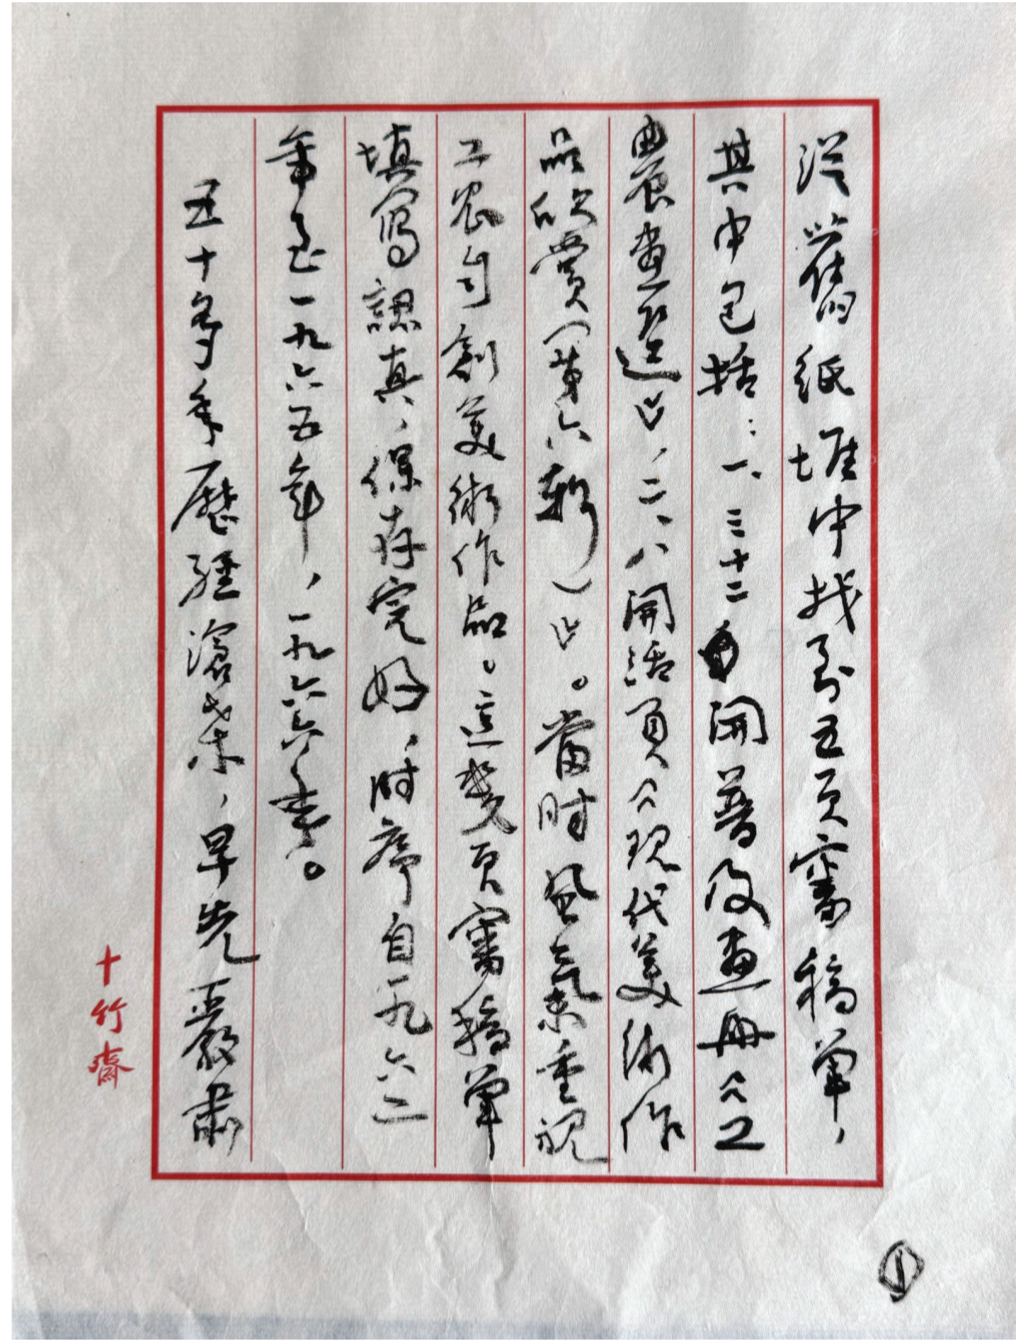 從舊紙堆中找到五頁審稿單，
其中包括：一、三十二開普及畫冊《工
農畫選》，二、八開活頁《現代美術作
品欣賞（第六輯）》。當时風氣重視
工农自創美術作品。這幾頁審稿單
填寫認真，保存完好，时序自一九六二
年至一九六五年，一九六六年。
五十多年歷經滄桑，早先嚴肅
十竹齋
1